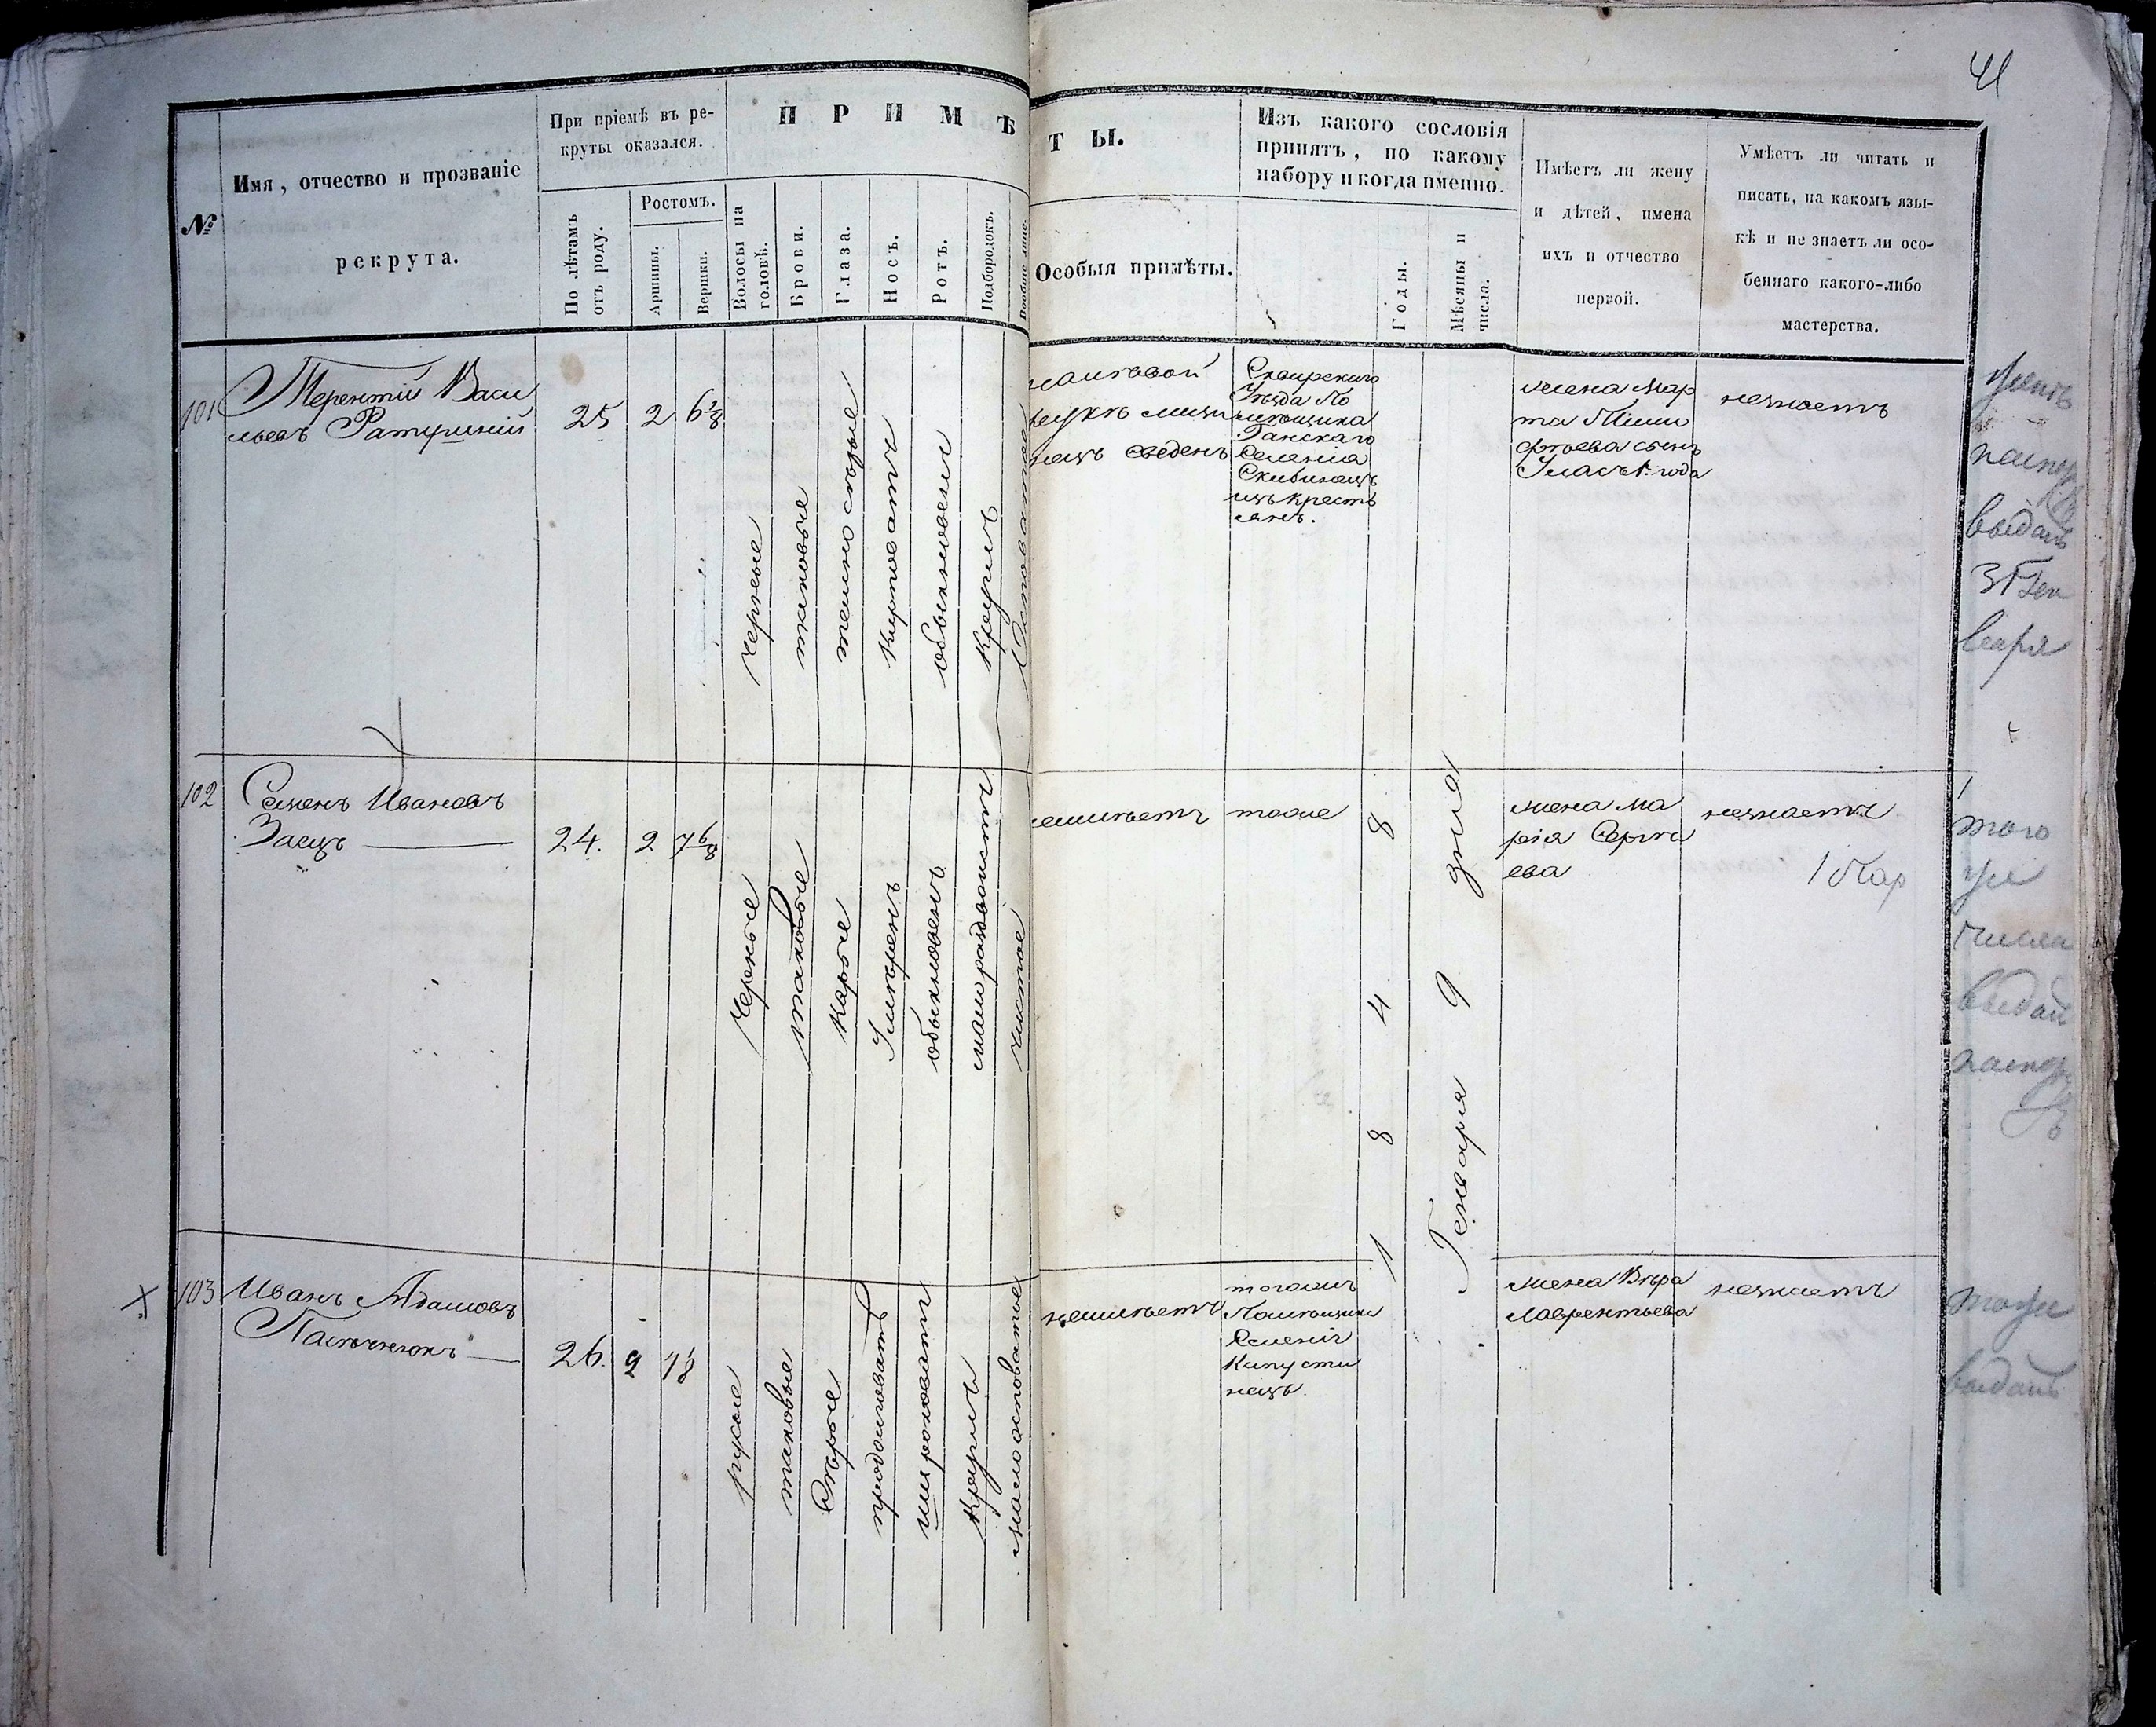 41
№
Имя, отчество и прозваніе
рекрута.
При пріемѣ въ ре-
круты оказался.
По лѣтамъ
отъ роду.
Ростомъ.
Аршины.
Вершки.
ПРИМѢ
Волосы на
головѣ.
Брови.
Глаза.
Носъ.
Ротъ.
Подбородокъ.
Вообще лице.
ТЫ.
Особыя примѣты.
Изъ какого сословія
принятъ, по какому
набору и когда именно.
Годы.
Мѣсяцы и
числа.
Имѣетъ ли жену
и дѣтей, имена
ихъ и отчество
первой.
Умѣетъ ли читать и
писать, на какомъ язы-
кѣ и не знаетъ ли осо-
беннаго какого-либо
мастерства.
101
Терентій Васи
льевъ
25
2
6 2/8
черные
таковые
темносѣрые
курноватъ
обыкновенъ
круглъ
Осповатое
сведенъ
Сквирскаго
Уѣзда По
мѣщика
Ганскаго
Селенія
Скибинецъ
изъ кресть
янъ.
жена Мар
та
сынъ
года
незнаетъ
выданъ
102
Семенъ Ивановъ
Заецъ
24.
2
7 6/8
черные
таковые
карые
Умѣренъ
обыкновенъ
чистое
неимѣетъ
тоже
1848
Генваря 9 дня
жена Ма
рія Сергѣ
ева
незнаетъ
того
же
числа
выдан
103
Иванъ Адамовъ
26.
2
7 1/8
русые
таковые
Сѣрые
продолговатъ
широковатъ
круглъ
малоосповатое
неимѣетъ
тогожъ
Помѣщика
Селенія
Капусти
нецъ.
жена Вѣра
Лаврентьева
незнаетъ
тоже
выданъ